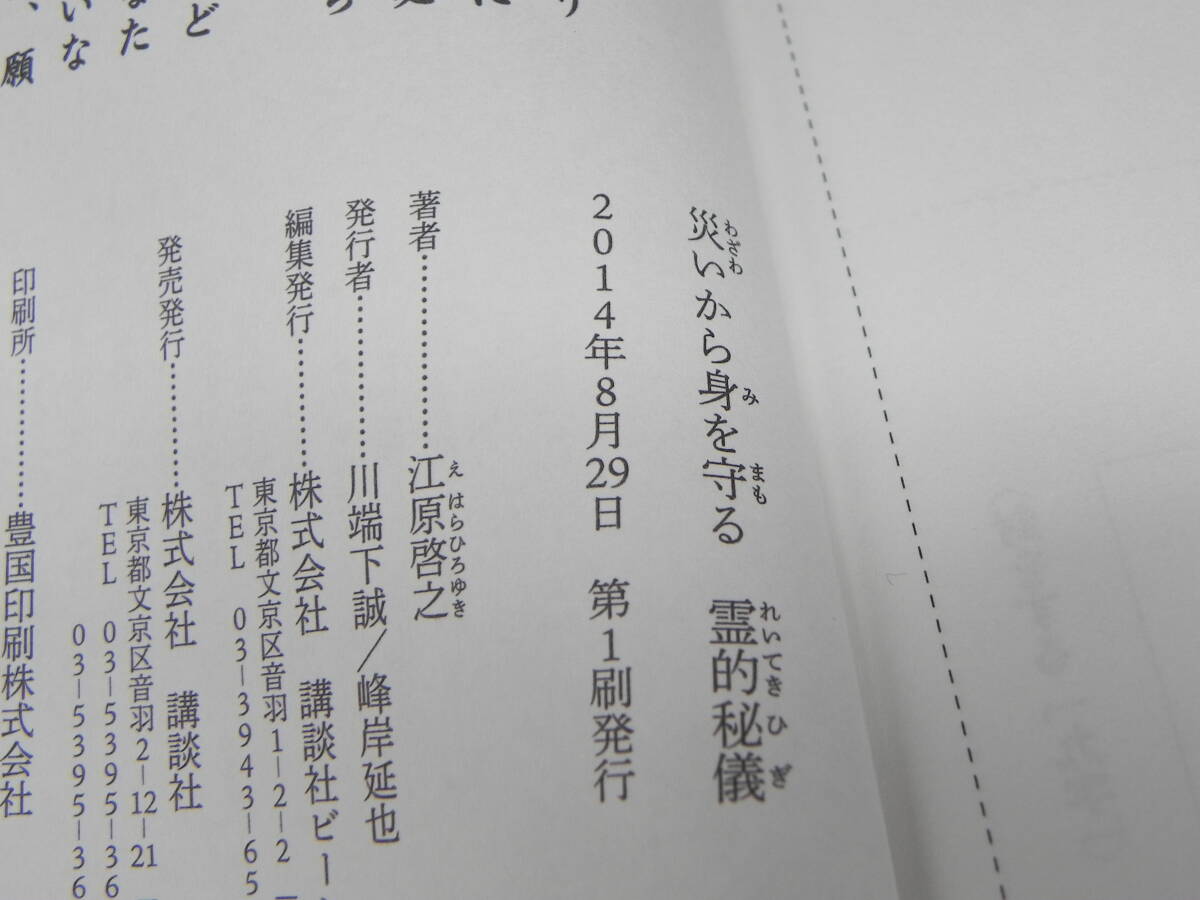 災いから身を守る　霊的秘儀
わざわ　み　まも　れいてきひぎ
2014年8月29日　第1刷発行
著者………………江原啓之
えはらひろゆき
発行者………………川端下誠／峰岸延也
編集発行……………株式会社　講談社ビー
東京都文京区音羽1-2-2
TEL　03-3943-65
発売発行……………株式会社　講談社
東京都文京区音羽2-12-21
TEL　03-5395-36
03-5395-36
印刷所………………豊国印刷株式会社
ど
なた
いな
、願